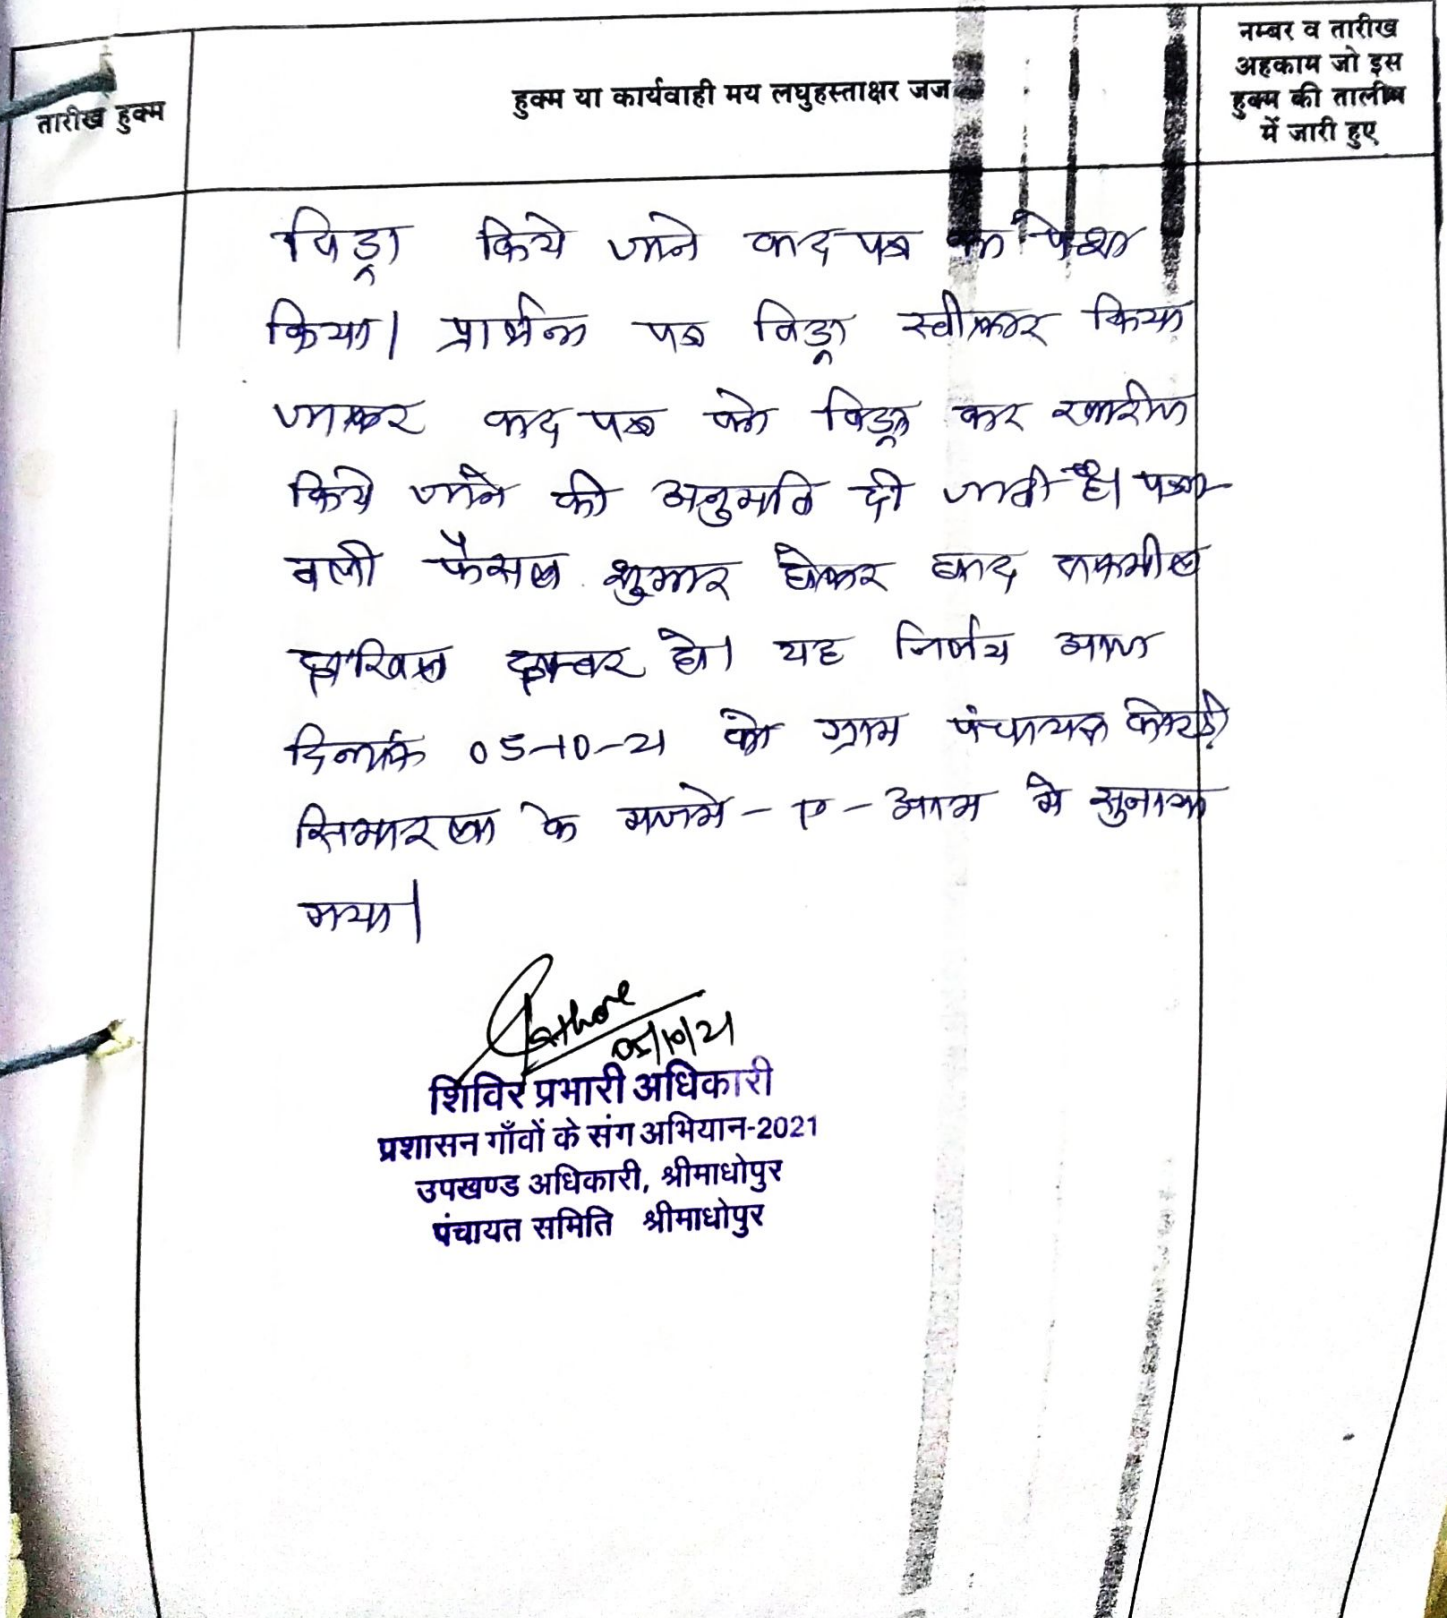 तारीख हुक्म
हुक्म या कार्यवाही मय लघुहस्ताक्षर जज
नम्बर व तारीख
अहकाम जो इस
हुक्म की तालीम
में जारी हुए
विड्रा किये जाने वाद पत्र का पेश
किया। प्रार्थना पत्र विड्रा स्वीकार किया
जाकर वाद पत्र को विड्रा कर खारीज
किये जाने की अनुमति दी जाती है। पत्रा-
वली फैसल शुमार होकर बाद तकमील
दाखिल दफ्तर हो। यह निर्णय आज
दिनांक 05-10-21 को ग्राम पंचायत कोटडी
सिमारला के मजमे-ए-आम मे सुनाया
गया।
Rathore
05/10/21
शिविर प्रभारी अधिकारी
प्रशासन गाँवों के संग अभियान-2021
उपखण्ड अधिकारी, श्रीमाधोपुर
पंचायत समिति श्रीमाधोपुर